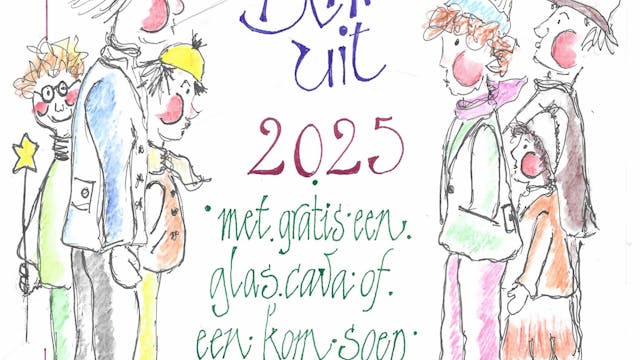 uit
2025
met gratis een
glas cava of
een kom soep